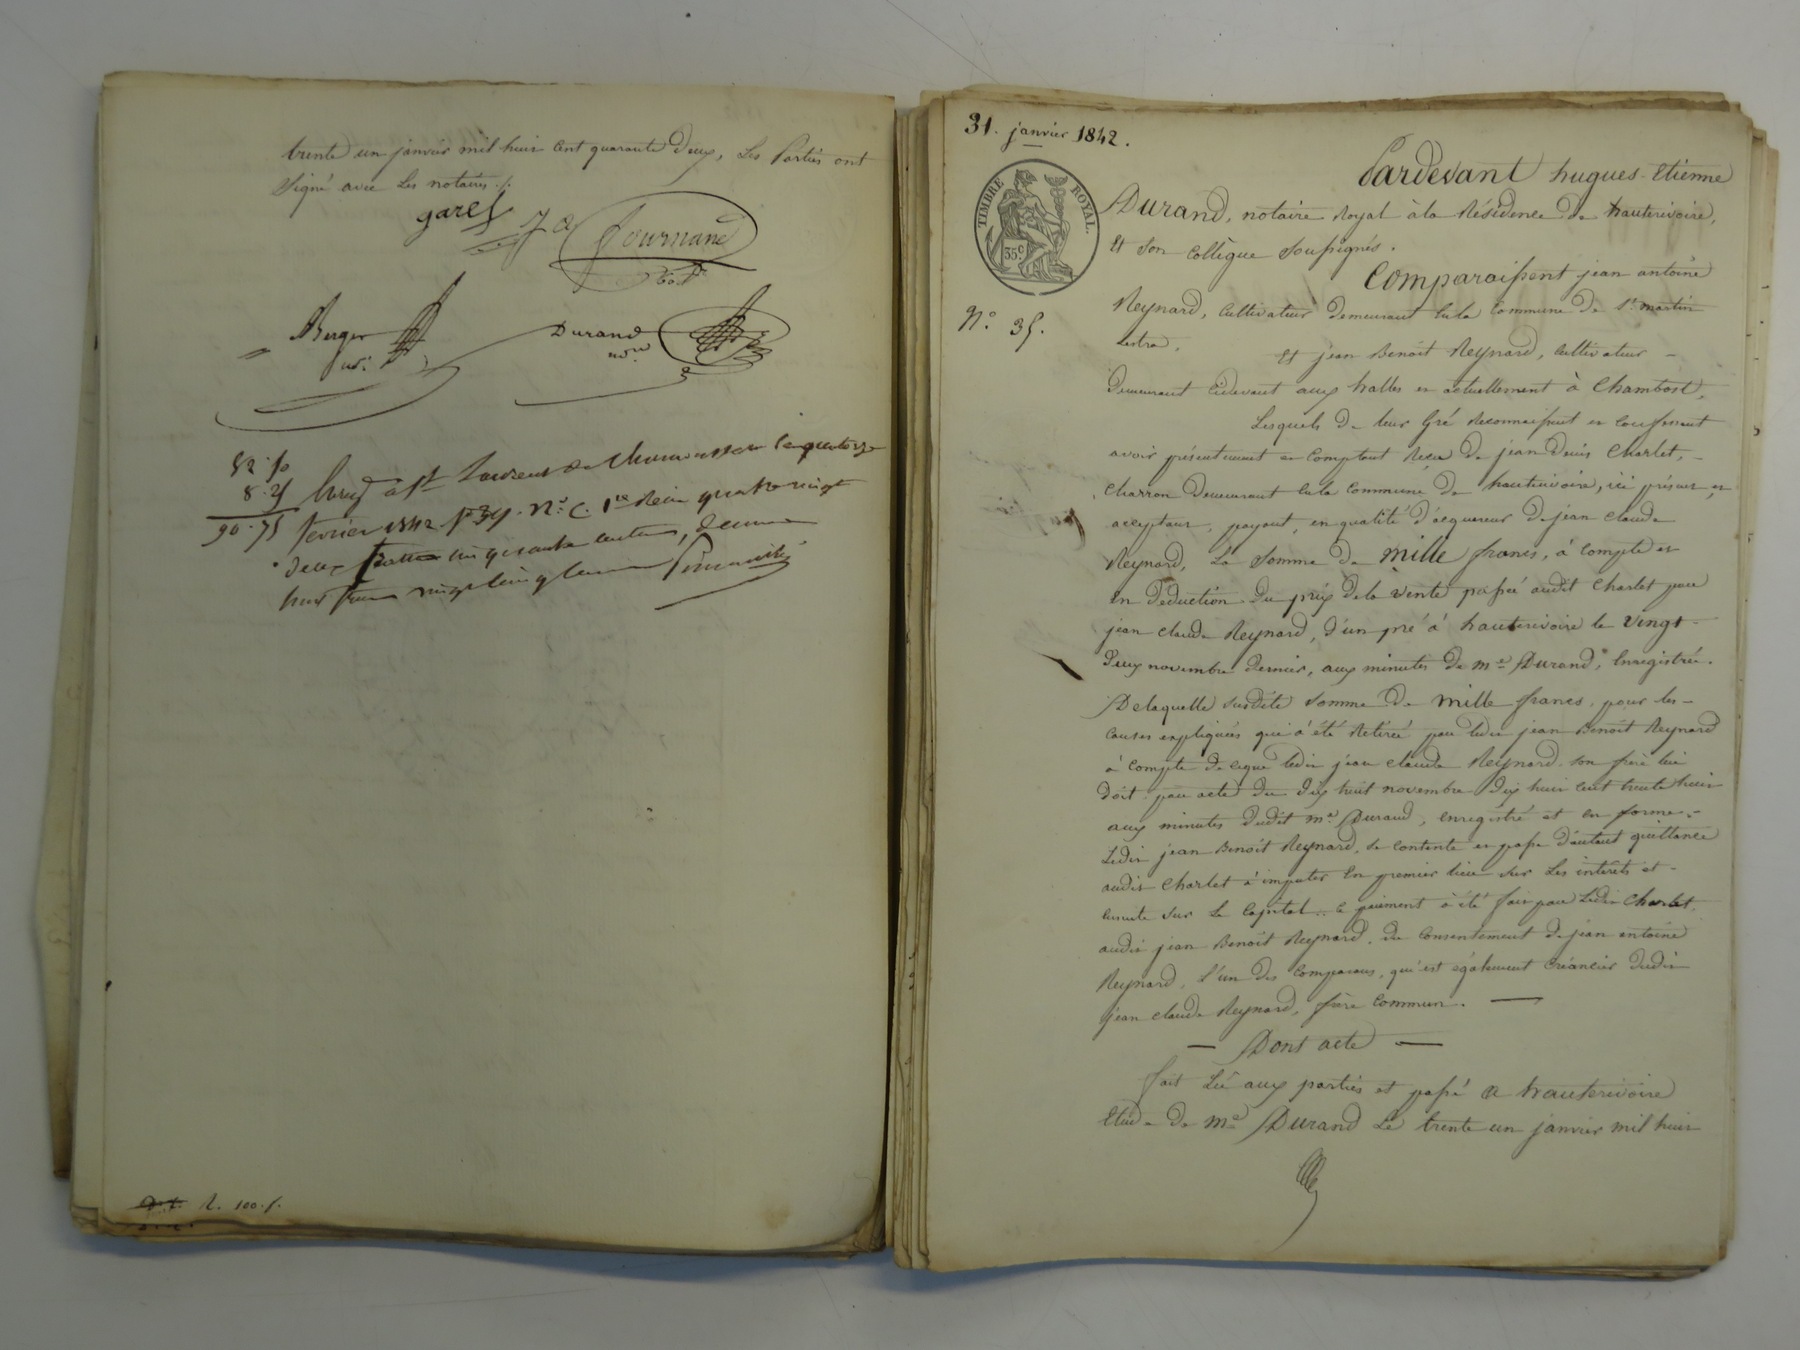 trente un janvier mil huit cent quarante deux, Les Parties ont
signé avec Les notaires ./.
garel
Journand
Berger
Durand
nre
82.50
8.25
90.75
Enregé à St Laurent de Chamousset le quatorze
fevrier 1842 fo 39. Ro. C. 1re Reçu quatre vingt
deux francs cinquante centimes, decime
huit francs vingt cinq centimes
R. 100. f.
31. janvier 1842.
TIMBRE ROYAL.
35c
No. 35.
Pardevant hugues-Etienne
Durand, notaire Royal à la Résidence de hauterivoire,
Et son collègue soussignés.
Comparaissent jean antoine
Reynard, cultivateur demeurant En la Commune de St martin
Lestra,
Et jean Benoit Reynard, cultivateur -
demeurant cidevant aux halles et actuellement à Chambost,
Lesquels de leur Gré Reconnaissent et confessent
avoir présentement et comptant Reçu de jean Denis Charlet, -
Charron demeurant En la Commune de hauterivoire, ici présent et
acceptant, payant, en qualité d'acquereur de jean claude
Reynard, La Somme de mille francs, à compte et
en déduction du prix de la vente passée audit Charlet par
jean claude Reynard, d'un pré à hauterivoire le vingt-
deux novembre dernier, aux minutes de me Durand, Enregistrée.
De laquelle susdite somme de mille francs, pour les -
causes expliquées qui a été Retirée par ledit jean Benoit Reynard
à compte de ce que ledit jean claude Reynard son frère lui
doit par acte du dix huit novembre dix huit cent trente huit
aux minutes dudit me Durand, enregistré et en forme. -
Ledit jean Benoit Reynard, se contente et passe d'autant quittance
audit Charlet à imputer En premier lieu sur Les intérêts et -
ensuite sur Le Capital. Ce paiment à été fait par Ledit Charlet
audit jean Benoit Reynard, du Consentement de jean antoine
Reynard, l'un des comparans, qui est également Créancier dudit
jean claude Reynard, frère commun. —
— Dont acte —
fait Lû aux parties et passé a hauterivoire
Etude de me Durand Le trente un janvier mil huit